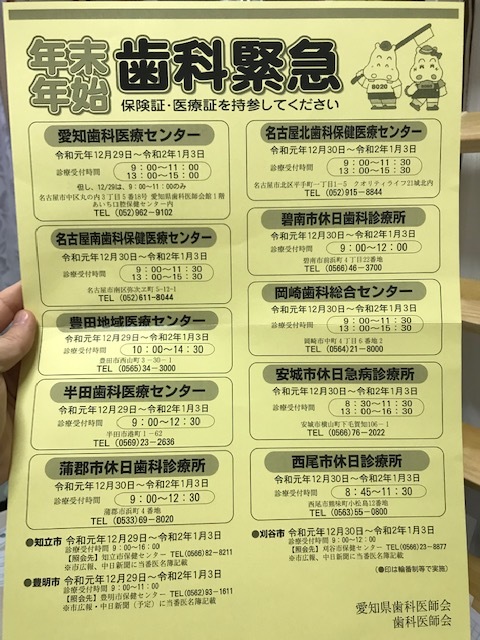 年末年始 歯科緊急
保険証・医療証を持参してください
8020
愛知歯科医療センター
令和元年12月29日～令和2年1月3日
診療受付時間 9:00～11:00
13:00～15:00
但し、12/29は、9:00～11:00のみ
名古屋市中区丸の内3丁目5番18号 愛知県歯科医師会館1階
あいち口腔保健センター内
TEL (052)962-9102
名古屋南歯科保健医療センター
令和元年12月30日～令和2年1月3日
診療受付時間 9:00～11:30
13:00～15:30
名古屋市南区弥次ヱ町5-12-1
TEL (052)611-8044
豊田地域医療センター
令和元年12月29日～令和2年1月3日
診療受付時間 10:00～14:30
豊田市西山町3-30-1
TEL (0565)34-3000
半田歯科医療センター
令和元年12月29日～令和2年1月3日
診療受付時間 9:00～12:30
半田市港町1-62
TEL (0569)23-2636
蒲郡市休日歯科診療所
令和元年12月30日～令和2年1月3日
診療受付時間 9:00～12:30
蒲郡市浜町4番地
TEL (0533)69-8020
名古屋北歯科保健医療センター
令和元年12月30日～令和2年1月3日
診療受付時間 9:00～11:30
13:00～15:30
名古屋市北区平手町一丁目1-5 クオリティライフ21城北内
TEL (052)915-8844
碧南市休日歯科診療所
令和元年12月30日～令和2年1月3日
診療受付時間 9:00～12:00
碧南市前浜町4丁目22番地
TEL (0566)46-3700
岡崎歯科総合センター
令和元年12月30日～令和2年1月3日
診療受付時間 9:00～11:30
13:00～15:30
岡崎市中町4丁目6番地2
TEL (0564)21-8000
安城市休日急病診療所
令和元年12月30日～令和2年1月3日
診療受付時間 8:30～11:30
13:00～16:30
安城市横山町下毛賀知106-1
TEL (0566)76-2022
西尾市休日診療所
令和元年12月30日～令和2年1月3日
診療受付時間 8:45～11:30
西尾市熊味町小松島12番地
TEL (0563)55-0800
●知立市 令和元年12月29日～令和2年1月3日
診療受付時間 9:00～16:00
【照会先】知立市保健センター TEL(0566)82-8211
※市広報、中日新聞に当番医名簿記載
●豊明市 令和元年12月29日～令和2年1月3日
診療受付時間 9:00～11:30
【照会先】豊明市保健センター TEL(0562)93-1611
※市広報・中日新聞(予定)に当番医名簿記載
●刈谷市 令和元年12月30日～令和2年1月3日
診療受付時間 9:00～12:00
【照会先】刈谷市保健センター TEL(0566)23-8877
※市広報、中日新聞に当番医名簿記載
(●印は輪番制等で実施)
愛知県歯科医師会
歯科医師会